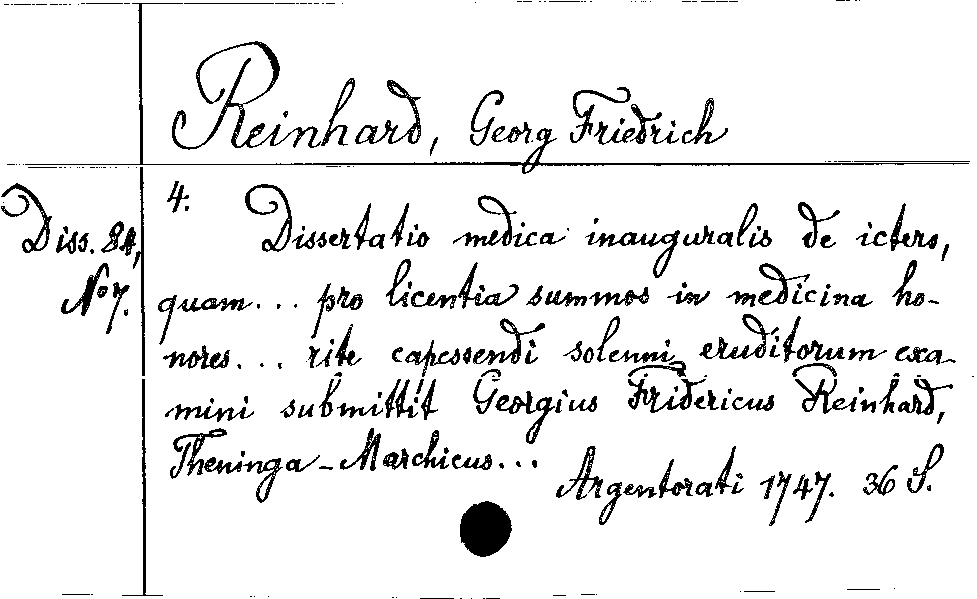 Reinhard, Georg Friedrich
4.
Diss. 84,
No 7.
Dissertatio medica inauguralis de ictero,
quam... pro licentia summos in medicina ho-
nores... rite capessendi solenni eruditorum exa-
mini submittit Georgius Fridericus Reinhard,
Theninga-Marchicus...
Argentorati 1747. 36 S.